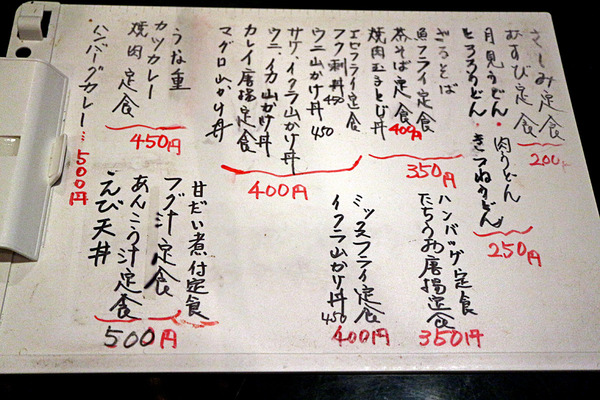 さしみ定食
むすび定食
200円
月見うどん・肉うどん
とろろうどん・きつねうどん
250円
ざるそば
魚フライ定食
茶そば定食 400円
焼肉玉子とじ丼
350円
エビフライ定食
フク刺丼 450
ウニ山かけ丼 450
サケ、イクラ山かけ丼
ウニ、イカ山かけ丼
カレイ唐揚定食
マグロ山かけ丼
400円
うな重
カツカレー
焼肉定食
450円
ハンバーグカレー… 500円
ハンバッグ定食
たちうお唐揚定食
350円
ミックスフライ定食
イクラ山かけ丼 450
400円
甘だい煮付定食
フグ汁定食
あんこう汁定食
えび天丼
500円